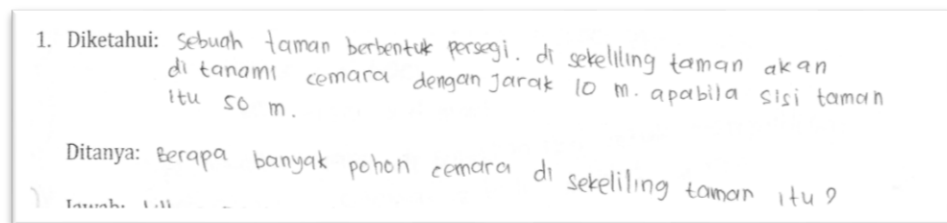 1. Diketahui: Sebuah taman berbentuk persegi. di sekeliling taman akan
di tanami cemara dengan jarak 10 m. apabila sisi taman
itu 50 m.
Ditanya: Berapa banyak pohon cemara di sekeliling taman itu?